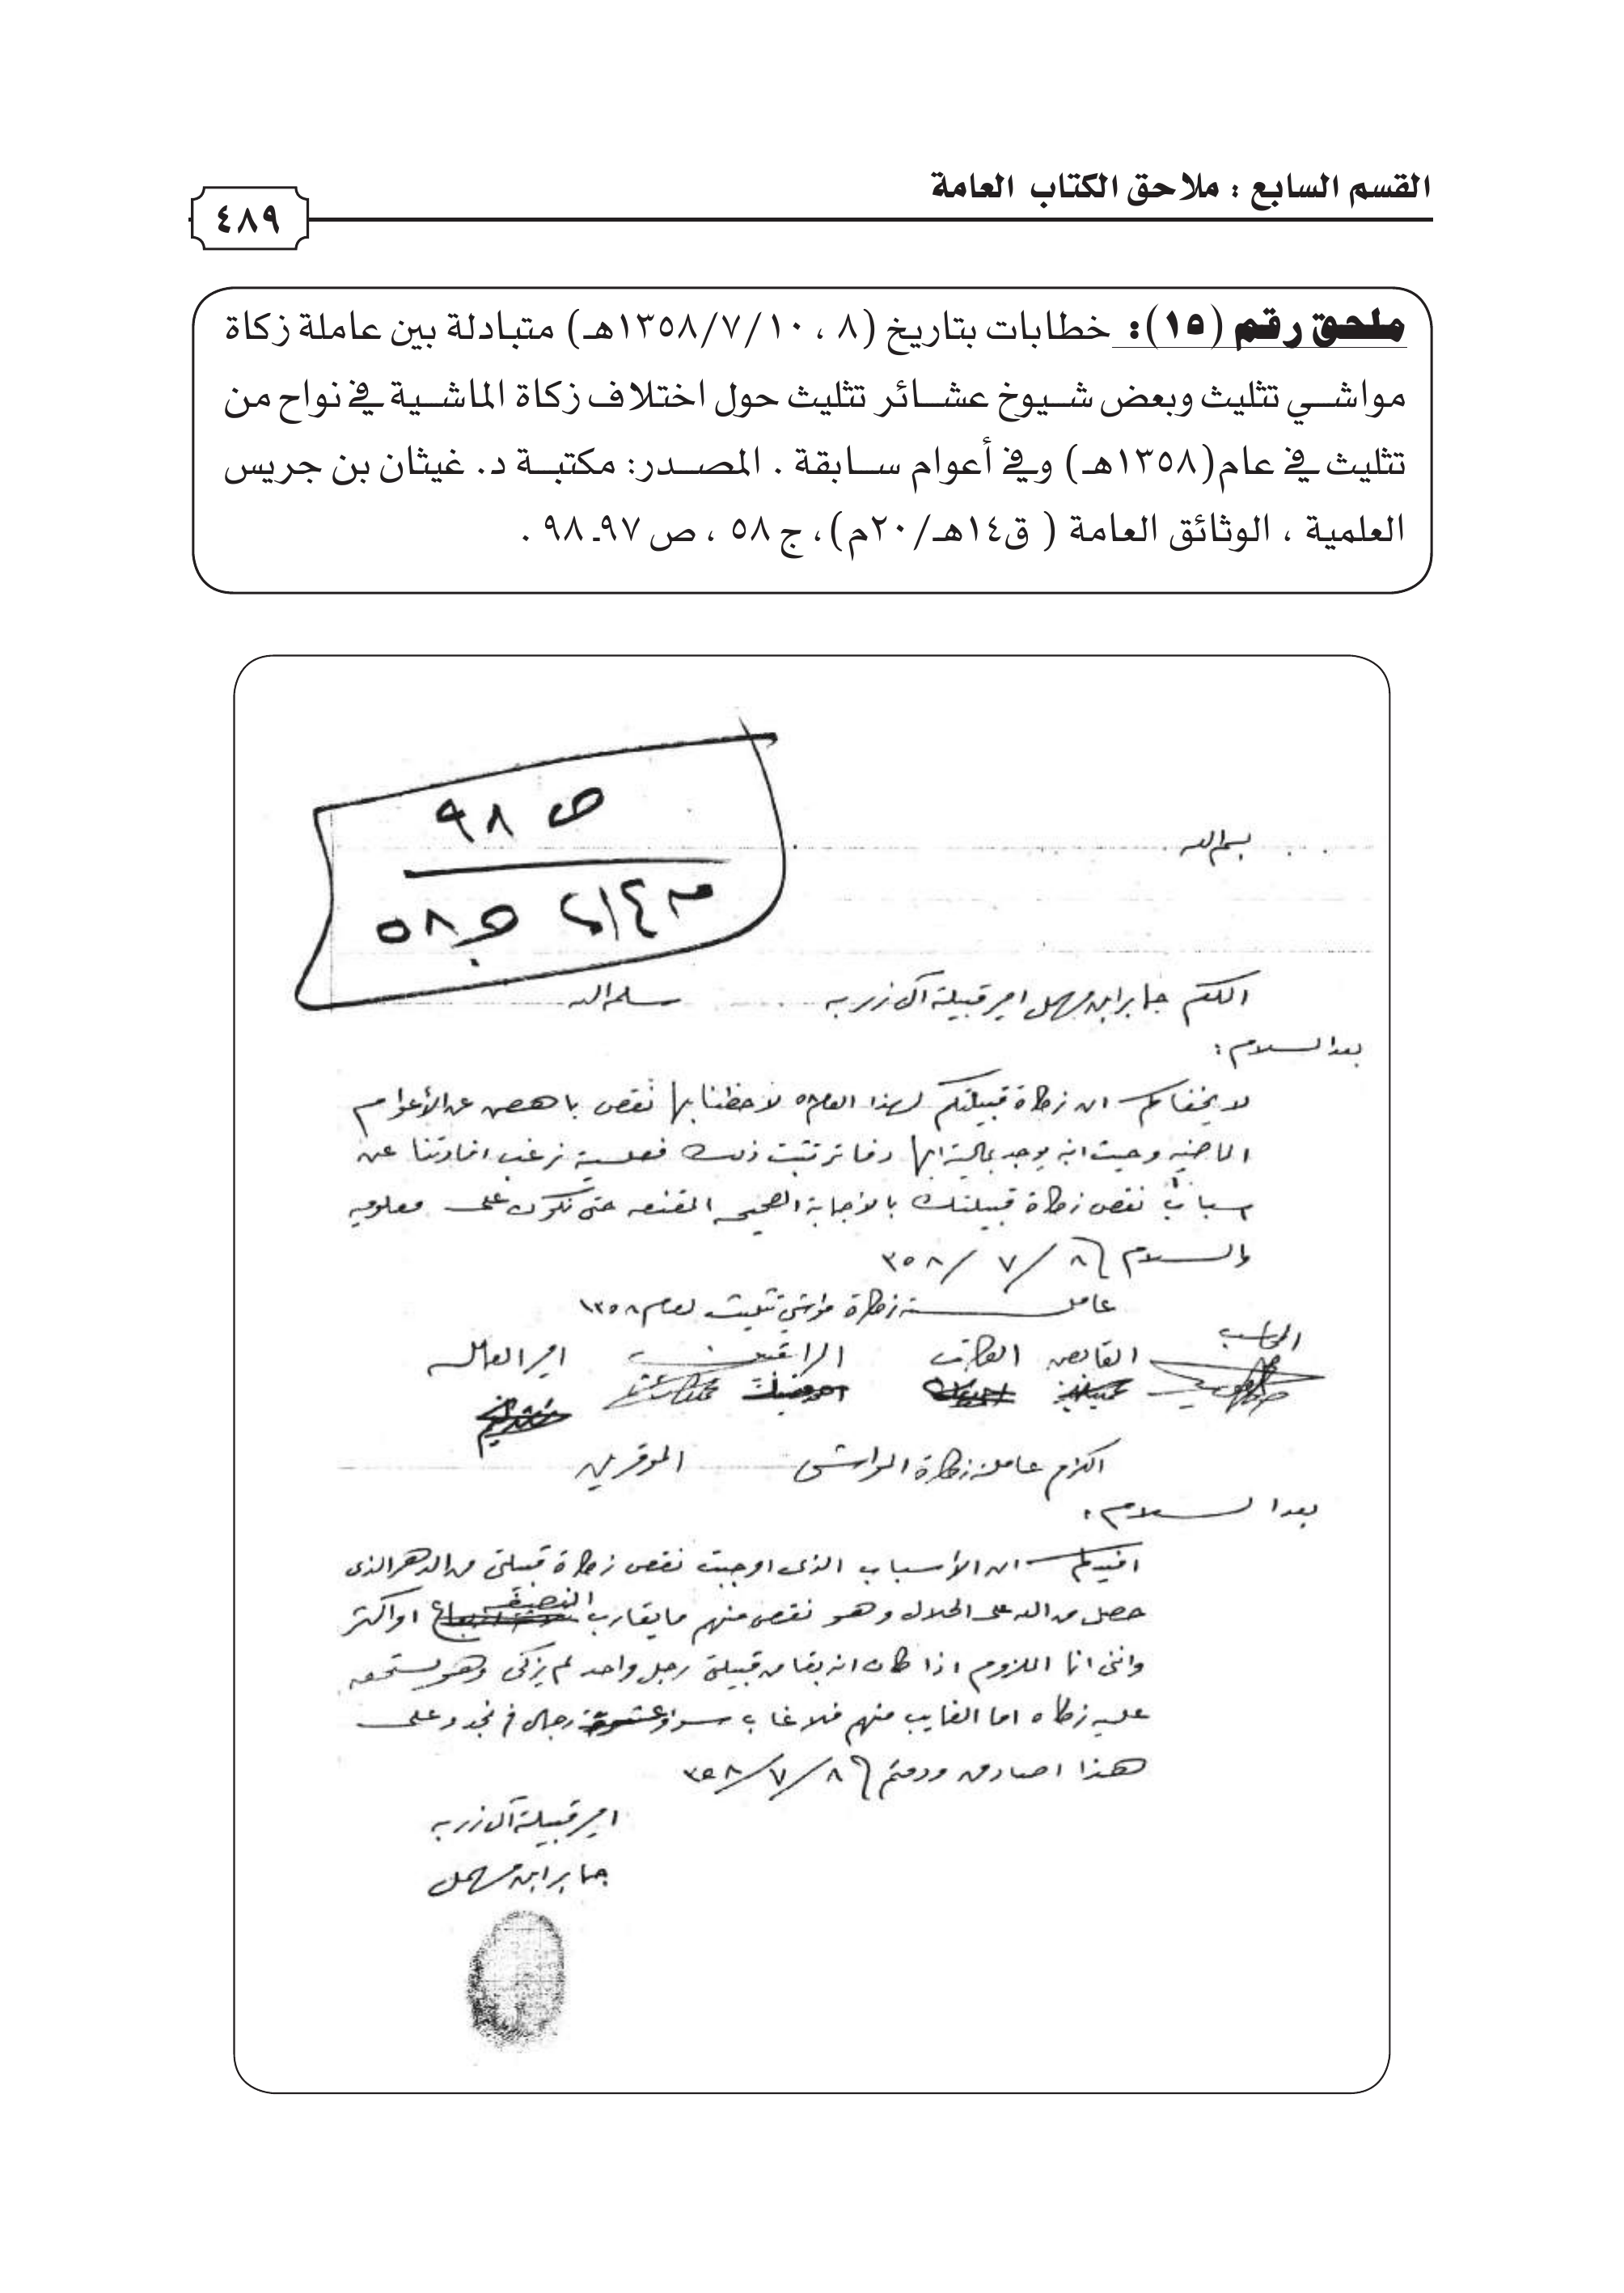 القسم السابع : ملاحق الكتاب العامة
٤٨٩
ملحق رقم (١٥): خطابات بتاريخ (٨ ، ١٣٥٨/٧/١٠هـ) متبادلة بين عاملة زكاة
مواشي تثليث وبعض شيوخ عشائر تثليث حول اختلاف زكاة الماشية في نواح من
تثليث في عام(١٣٥٨هـ) وفي أعوام سابقة . المصدر: مكتبة د. غيثان بن جريس
العلمية ، الوثائق العامة ( ق١٤هـ/٢٠م)، ج ٥٨ ، ص ٩٧ـ ٩٨ .
ص ٩٨
ج ٥٨
بسم الله
المكرم جابر ابن مهمل امير قبيلة آل زربه سلمه الله
بعد السلام :
لا يخفاكم ان زكاة قبيلتكم لهذا العام ٥٨ لاحظنا بها نقص باهص عن الأعوام
الماضيه وحيث انه يوجد دفاتر تثبت ذلك فعليه نرغب افادتنا عن
اسباب نقص زكاة قبيلتك بالاجابة الصحيحه المقنعه حتى نكون على معلوميه
والسلام ٨ / ٧ / ٣٥٨
عاملة زكاة مواشي تثليث لعام ١٣٥٨
المحاسب القابض الكاتب الرافقين امير العامله
الكرام عاملة زكاة المواشي الموقرين
بعد السلام :
افيدكم ان الأسباب الذى اوجبت نقص زكاة قبيلتى من الدهر الذى
حصل من الله على الحلال وهو نقص منهم ما يقارب النصيفه او اكثر
واننى انا الملزوم اذا كان انه بقا من قبيلتى رجل واحد لم يزكى وهو يستحق
عليه زكاه اما الغايب منهم فلا غاب سوا رجال في نجد وعلى
هذا اصادق ودمتم ٨ / ٧ / ٣٥٨
امير قبيلة آل زربه
جابر ابن مهمل